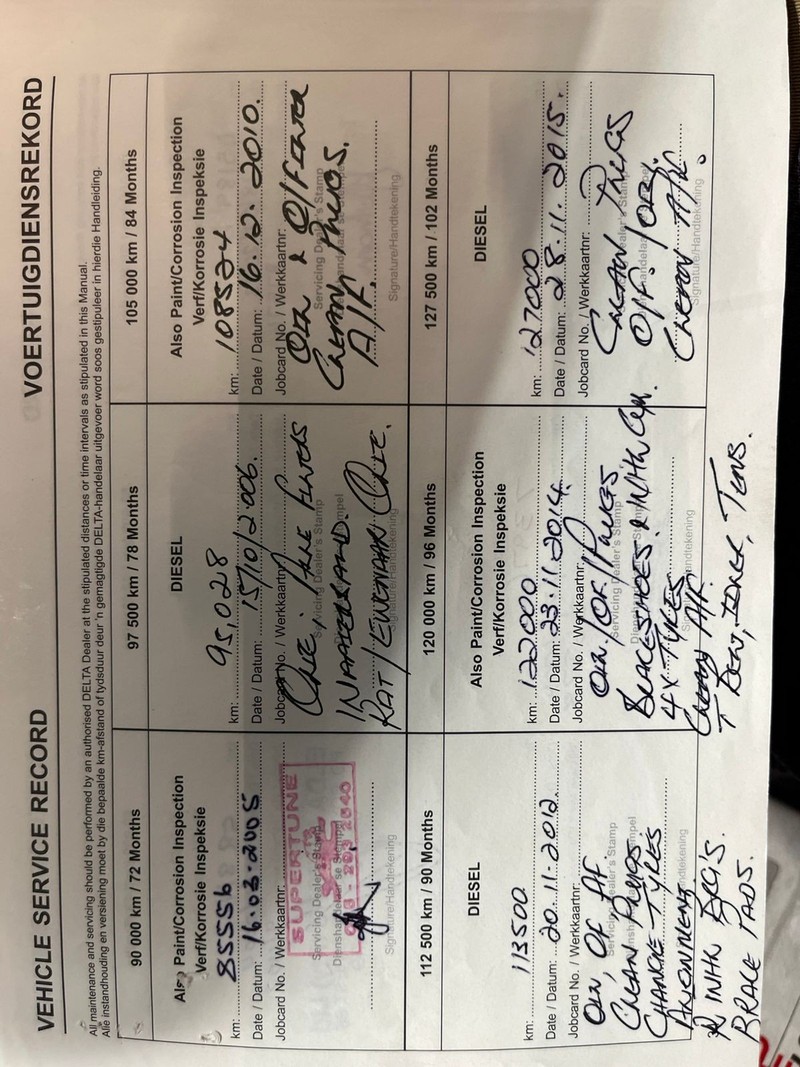 VEHICLE SERVICE RECORD
VOERTUIGDIENSREKORD
All maintenance and servicing should be performed by an authorised DELTA Dealer at the stipulated distances or time intervals as stipulated in this Manual.
Alle instandhouding en versiening moet by die bepaalde km-afstand of tydsduur deur 'n gemagtigde DELTA-handelaar uitgevoer word soos gestipuleer in hierdie Handleiding.
90 000 km / 72 Months
Also Paint/Corrosion Inspection
Verf/Korrosie Inspeksie
km: 85556
Date / Datum: 16.03.2005
Jobcard No. / Werkkaartnr:
SUPERTUNE
Servicing Dealer's Stamp
Signature/Handtekening
97 500 km / 78 Months
DIESEL
km: 95,028
Date / Datum: 15/10/2006.
Jobcard No. / Werkkaartnr:
Olie,
Servicing Dealer's Stamp
Olie.
Signature/Handtekening
105 000 km / 84 Months
Also Paint/Corrosion Inspection
Verf/Korrosie Inspeksie
km: 108524
Date / Datum: 16.12.2010.
Jobcard No. / Werkkaartnr:
OIL & O/FILTER
Servicing Dealer's Stamp
CLEAN PLUGS.
A/F.
Signature/Handtekening
112 500 km / 90 Months
DIESEL
km: 113500
Date / Datum: 20.11.2012
Jobcard No. / Werkkaartnr:
OIL, OF AF.
Servicing Dealer's Stamp
CLEAN PLUGS
CHANGE TYRES
ALIGNMENT
R INHW BRG'S.
BRAKE PADS.
120 000 km / 96 Months
Also Paint/Corrosion Inspection
Verf/Korrosie Inspeksie
km: 122000
Date / Datum: 23.11.2014.
Jobcard No. / Werkkaartnr:
OIL/OF/PLUGS
Servicing Dealer's Stamp
BRAKESHOES & W/HW CYL.
4X TYRES
CLEAN A/F
T BELT, IDLER, TENS.
127 500 km / 102 Months
DIESEL
km: 127000
Date / Datum: 28.11.2015.
Jobcard No. / Werkkaartnr:
CLEAN PLUGS
O/F./OIL.
CLEAN A/F.
Signature/Handtekening